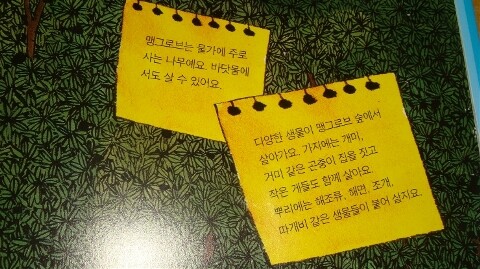 맹그로브는 물가에 주로
사는 나무예요. 바닷물에
서도 살 수 있어요.
다양한 생물이 맹그로브 숲에서
살아가요. 가지에는 개미,
거미 같은 곤충이 집을 짓고
작은 게들도 함께 살아요.
뿌리에는 해조류, 해면, 조개,
따개비 같은 생물들이 붙어 살지요.